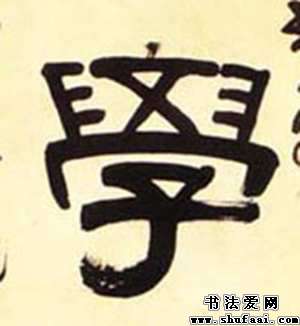 學
书法爱网
www.shufaai.com